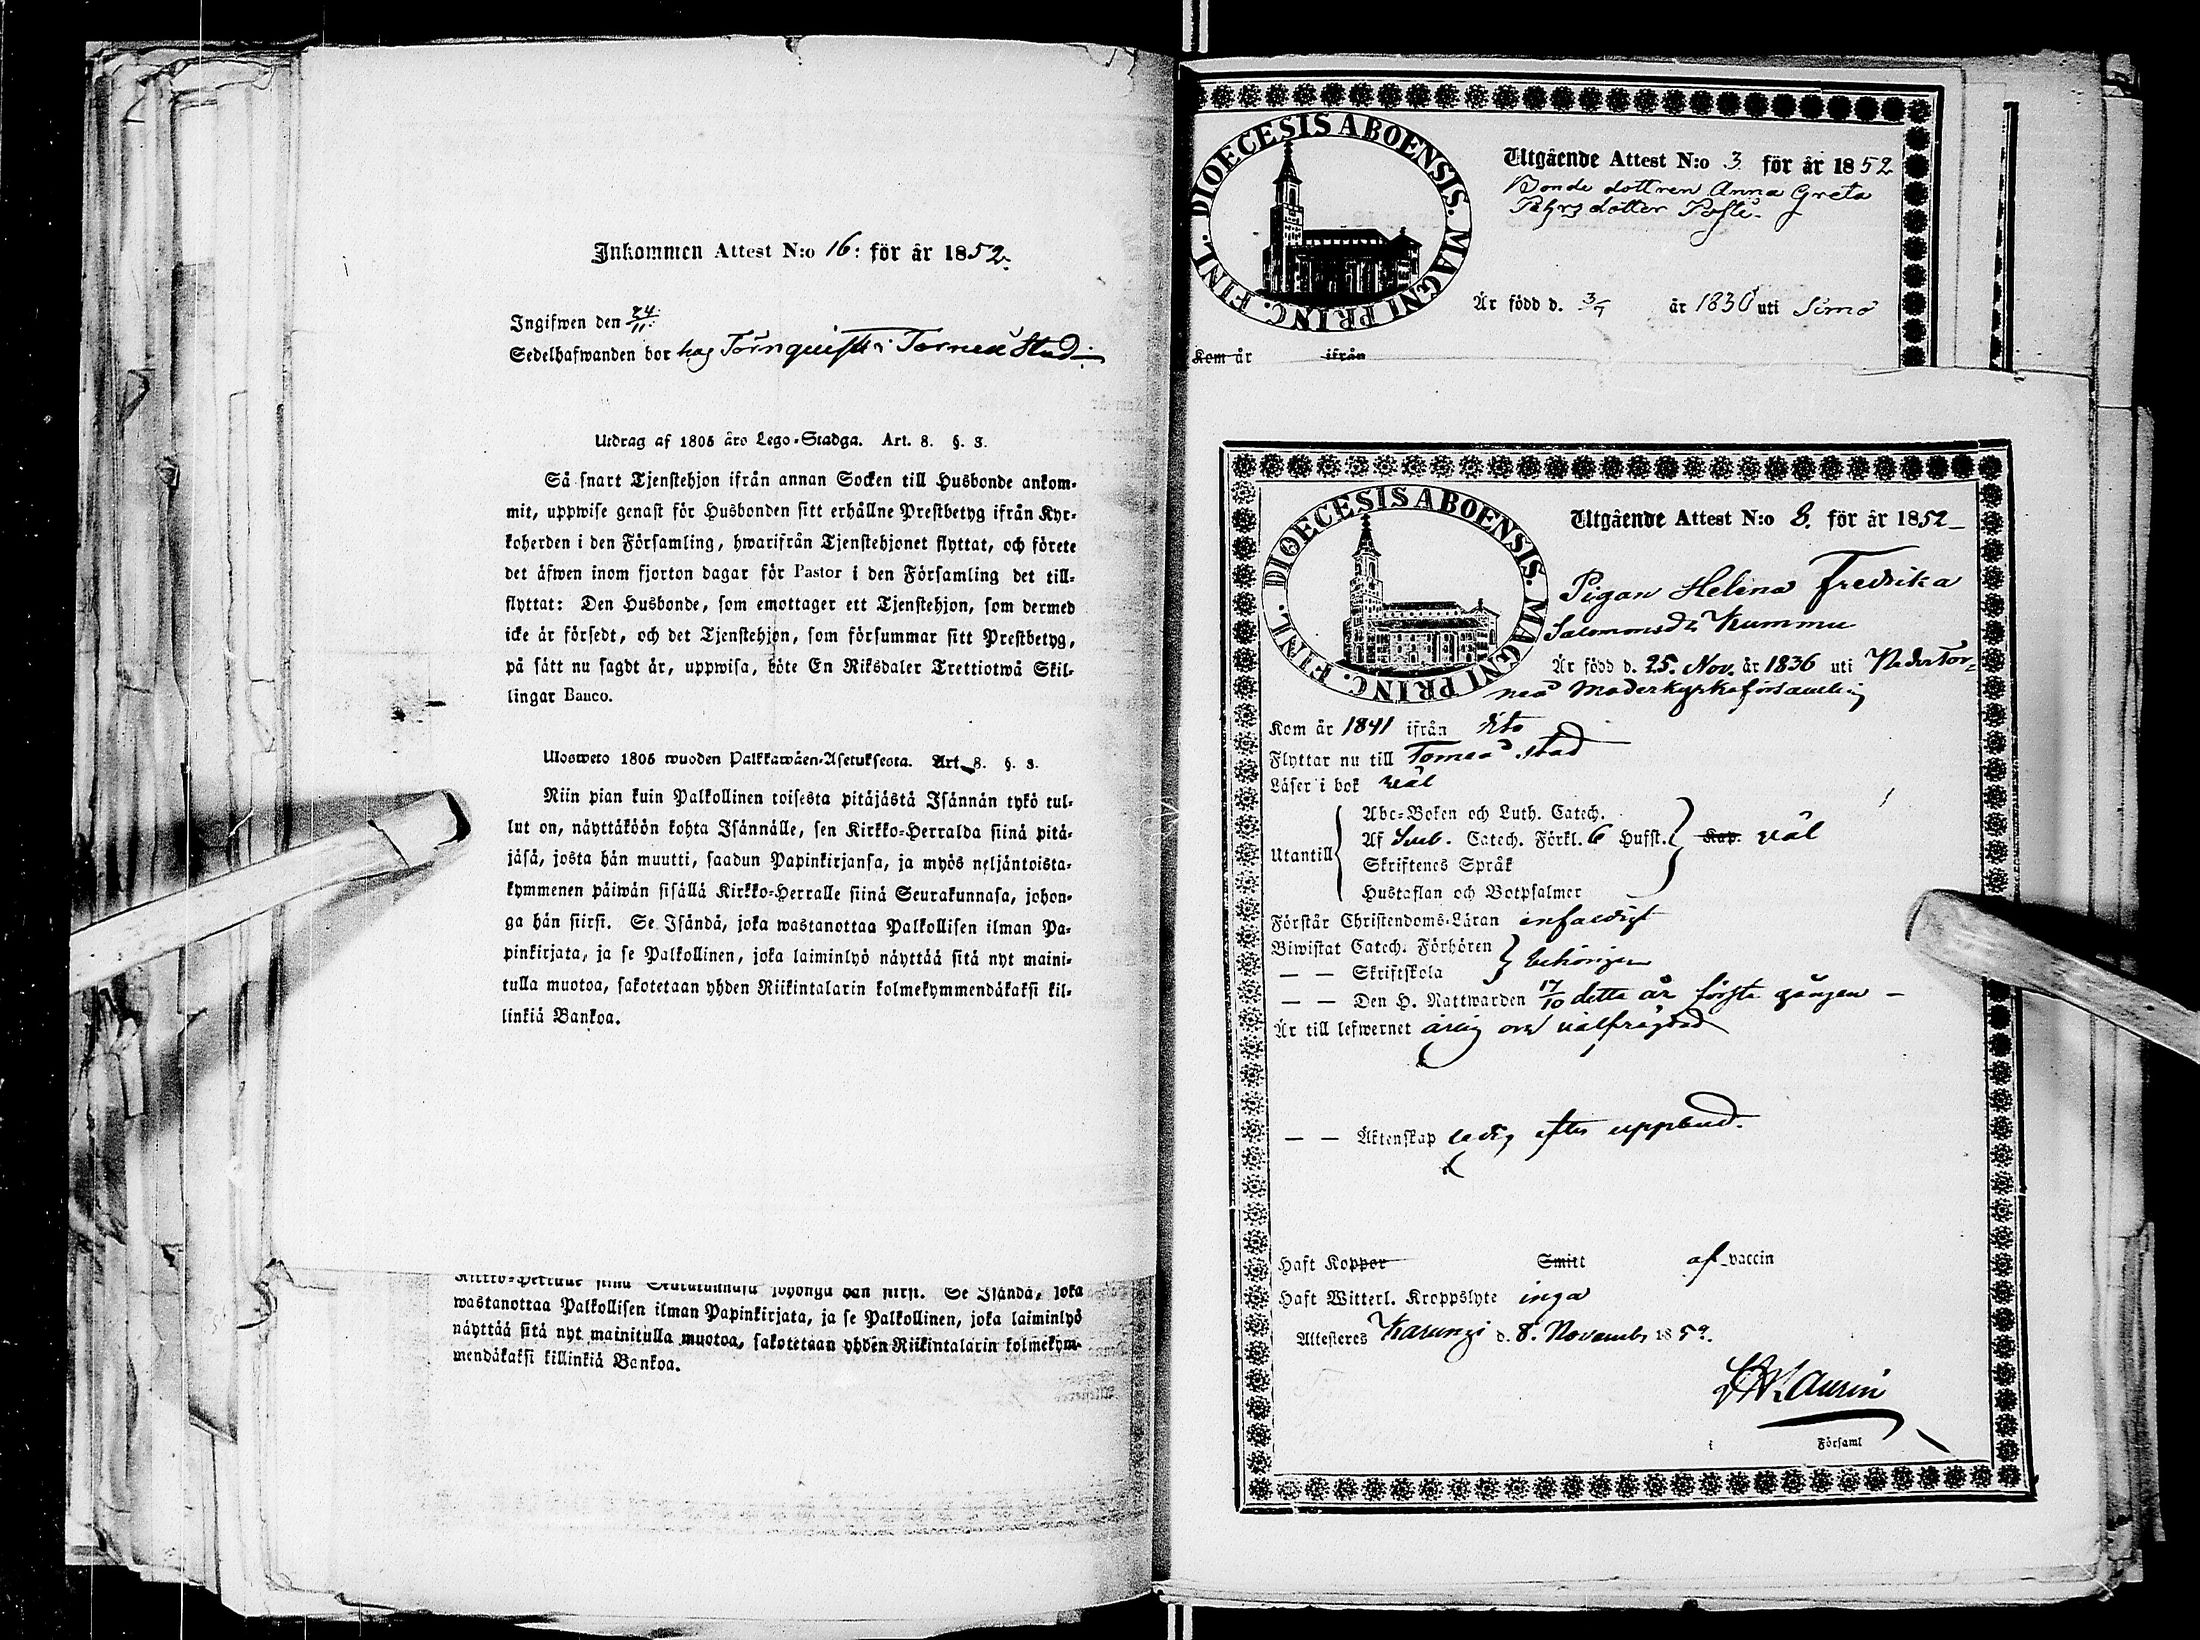 Inkommen Attest N:o 16: för år 1852.
Ingifwen den 24/11:
Sedelhafwanden bor hos Törnquist i Torneå Stad
Utdrag af 1805 års Lego-Stadga. Art. 8. §. 3.
Så snart Tjenstehjon ifrån annan Socken till Husbonde ankom-
mit, uppwise genast för Husbonden sitt erhållne Prestbetyg ifrån Kyr-
koherden i den Församling, hwarifrån Tjenstehjonet flyttat, och förete
det äfwen inom fjorton dagar för Pastor i den Församling det till-
flyttat: Den Husbonde, som emottager ett Tjenstehjon, som dermed
icke är försedt, och det Tjenstehjon, som försummar sitt Prestbetyg,
på sätt nu sagdt är, uppwisa, böte En Riksdaler Trettiotwå Skil-
lingar Banco.
Ulosweto 1805 wuoden Palkkawäen-Asetuksesta. Art. 8. §. 3.
Niin pian kuin Palkollinen toisesta pitäjästä Isännän tykö tul-
lut on, näyttäköön kohta Isännälle, sen Kirkko-Herralda siinä pitä-
jäsä, josta hän muutti, saadun Papinkirjansa, ja myös neljäntoista-
kymmenen päiwän sisällä Kirkko-Herralle siinä Seurakunnasa, johon-
ga hän siirsi. Se Isändä, joka wastanottaa Palkollisen ilman Pa-
pinkirjata, ja se Palkollinen, joka laiminlyö näyttää sitä nyt maini-
tulla muotoa, sakotetaan yhden Riikintalarin kolmekymmendäkaksi kil-
linkiä Bankoa.
Kirkko-Herralle siinä Seurakunnasa johonga hän siirsi. Se Isändä, joka
wastanottaa Palkollisen ilman Papinkirjata, ja se Palkollinen, joka laiminlyö
näyttää sitä nyt mainitulla muotoa, sakotetaan yhden Riikintalarin kolmekym-
mendäkaksi killinkiä Bankoa.
DIOECESIS ABOENSIS. MAGNI PRINC. FINL.
Utgående Attest N:o 3 för år 1852
Bonde dottren Anna Greta
Pehrsdotter
Är född d. år 1830 uti Simo
Kom år ifrån
DIOECESIS ABOENSIS. MAGNI PRINC. FINL.
Utgående Attest N:o 8. för år 1852
Pigan Helena Fredrika
Salomonsdr Kummu
Är född d. 25. Nov. år 1836 uti Neder Tor-
neå Moderkyrkoförsamling
Kom år 1841 ifrån dito
Flyttar nu till Torneå stad
Läser i bok väl
Utantill
Abc-Boken och Luth. Catech.
Af Sveb. Catech. Förkl. 6 Hufst. Kap. väl
Skriftenes Språk
Hustaflan och Botpsalmer
Förstår Christendoms-Läran enfaldigt
Biwistat Catech. Förhören
— — Skriftskola behörigen
— — Den H. Nattwarden 17/10 detta år första gången —
Är till lefwernet ärlig och välfrägdad
— — Äktenskap ledig efter uppbud.
Haft Koppor Smitt af vaccin
Haft Witterl. Kroppslyte inga
Attesteres Karungi d. 8. Novemb 1852.
Laurin
i Församl